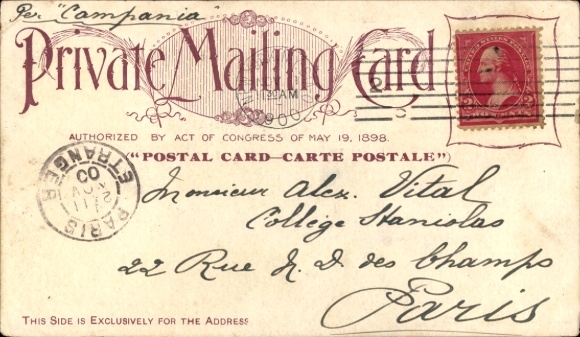 Per "Campania"
Private Mailing Card
AM
1900
AUTHORIZED BY ACT OF CONGRESS OF MAY 19, 1898.
("POSTAL CARD—CARTE POSTALE")
PARIS
ETRANGER
NOV
00
Monsieur Alex. Vital
Collège Stanislas
22 Rue N. D. des Champs
Paris
THIS SIDE IS EXCLUSIVELY FOR THE ADDRESS